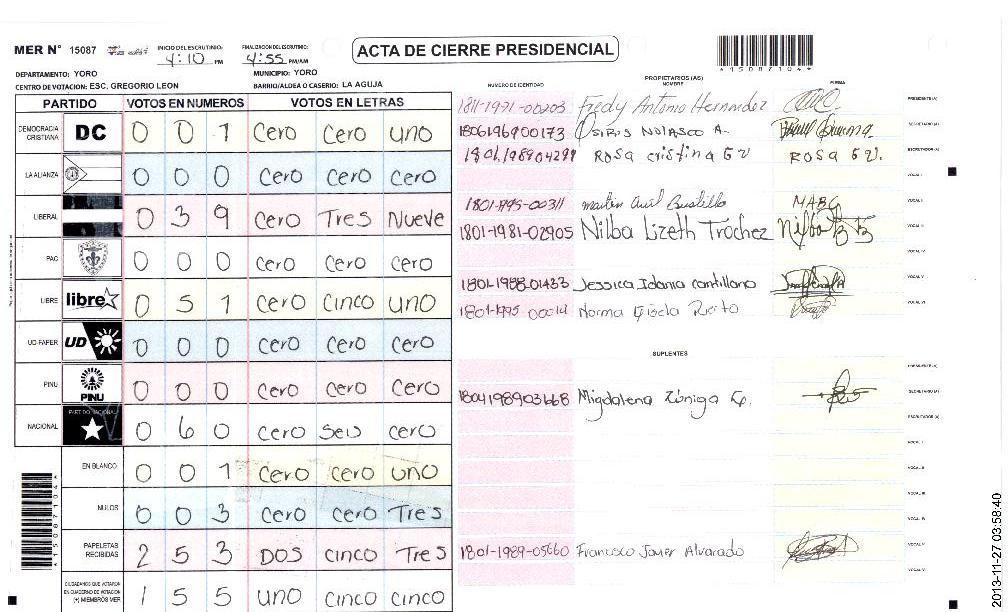 MER N° 15087 INICIO DEL ESCRUTINIO: 4:10 PM FINALIZACION DEL ESCRUTINIO: 4:55 PM/AM ACTA DE CIERRE PRESIDENCIAL *15087104*
DEPARTAMENTO: YORO MUNICIPIO: YORO
CENTRO DE VOTACION: ESC. GREGORIO LEON BARRIO/ALDEA O CASERIO: LA AGUJA
PARTIDO VOTOS EN NUMEROS VOTOS EN LETRAS
DEMOCRACIA CRISTIANA DC 0 0 1 Cero Cero uno
LA ALIANZA 0 0 0 Cero Cero Cero
LIBERAL 0 3 9 Cero Tres Nueve
PAC 0 0 0 Cero Cero Cero
LIBRE libre 0 5 1 Cero Cinco uno
UD-FAPER UD 0 0 0 Cero Cero Cero
PINU PINU 0 0 0 Cero Cero Cero
NACIONAL PARTIDO NACIONAL 0 6 0 Cero Seis cero
EN BLANCO 0 0 1 Cero Cero uno
NULOS 0 0 3 Cero Cero Tres
PAPELETAS RECIBIDAS 2 5 3 DOS cinco Tres
CIUDADANOS QUE VOTARON EN CUADERNO DE VOTACION (+) MIEMBROS MER 1 5 5 uno cinco cinco
*15087104*
PROPIETARIOS (AS)
NUMERO DE IDENTIDAD NOMBRE FIRMA
1811-1971-00203 Fredy Antonio Hernandez PRESIDENTE (A)
1806196900173 Osiris Nolasco A. SECRETARIO (A)
1801198904299 Rosa cristina G v ROSA G v. ESCRUTADOR (A)
VOCAL I
1801-1995-00311 Bustillo MABG VOCAL II
1801-1981-02905 Nilba Lizeth Trochez VOCAL III
VOCAL IV
1801-1988-01433 Jessica Idania cantillano VOCAL V
1801-1995-00014 Norma Gisela VOCAL VI
SUPLENTES
PRESIDENTE (A)
1804198903668 Migdalena Zúniga SECRETARIO (A)
ESCRUTADOR (A)
VOCAL I
VOCAL II
VOCAL III
VOCAL IV
1801-1989-05660 Francisco Javier Alvarado VOCAL V
VOCAL VI
2013-11-27 03:58:40